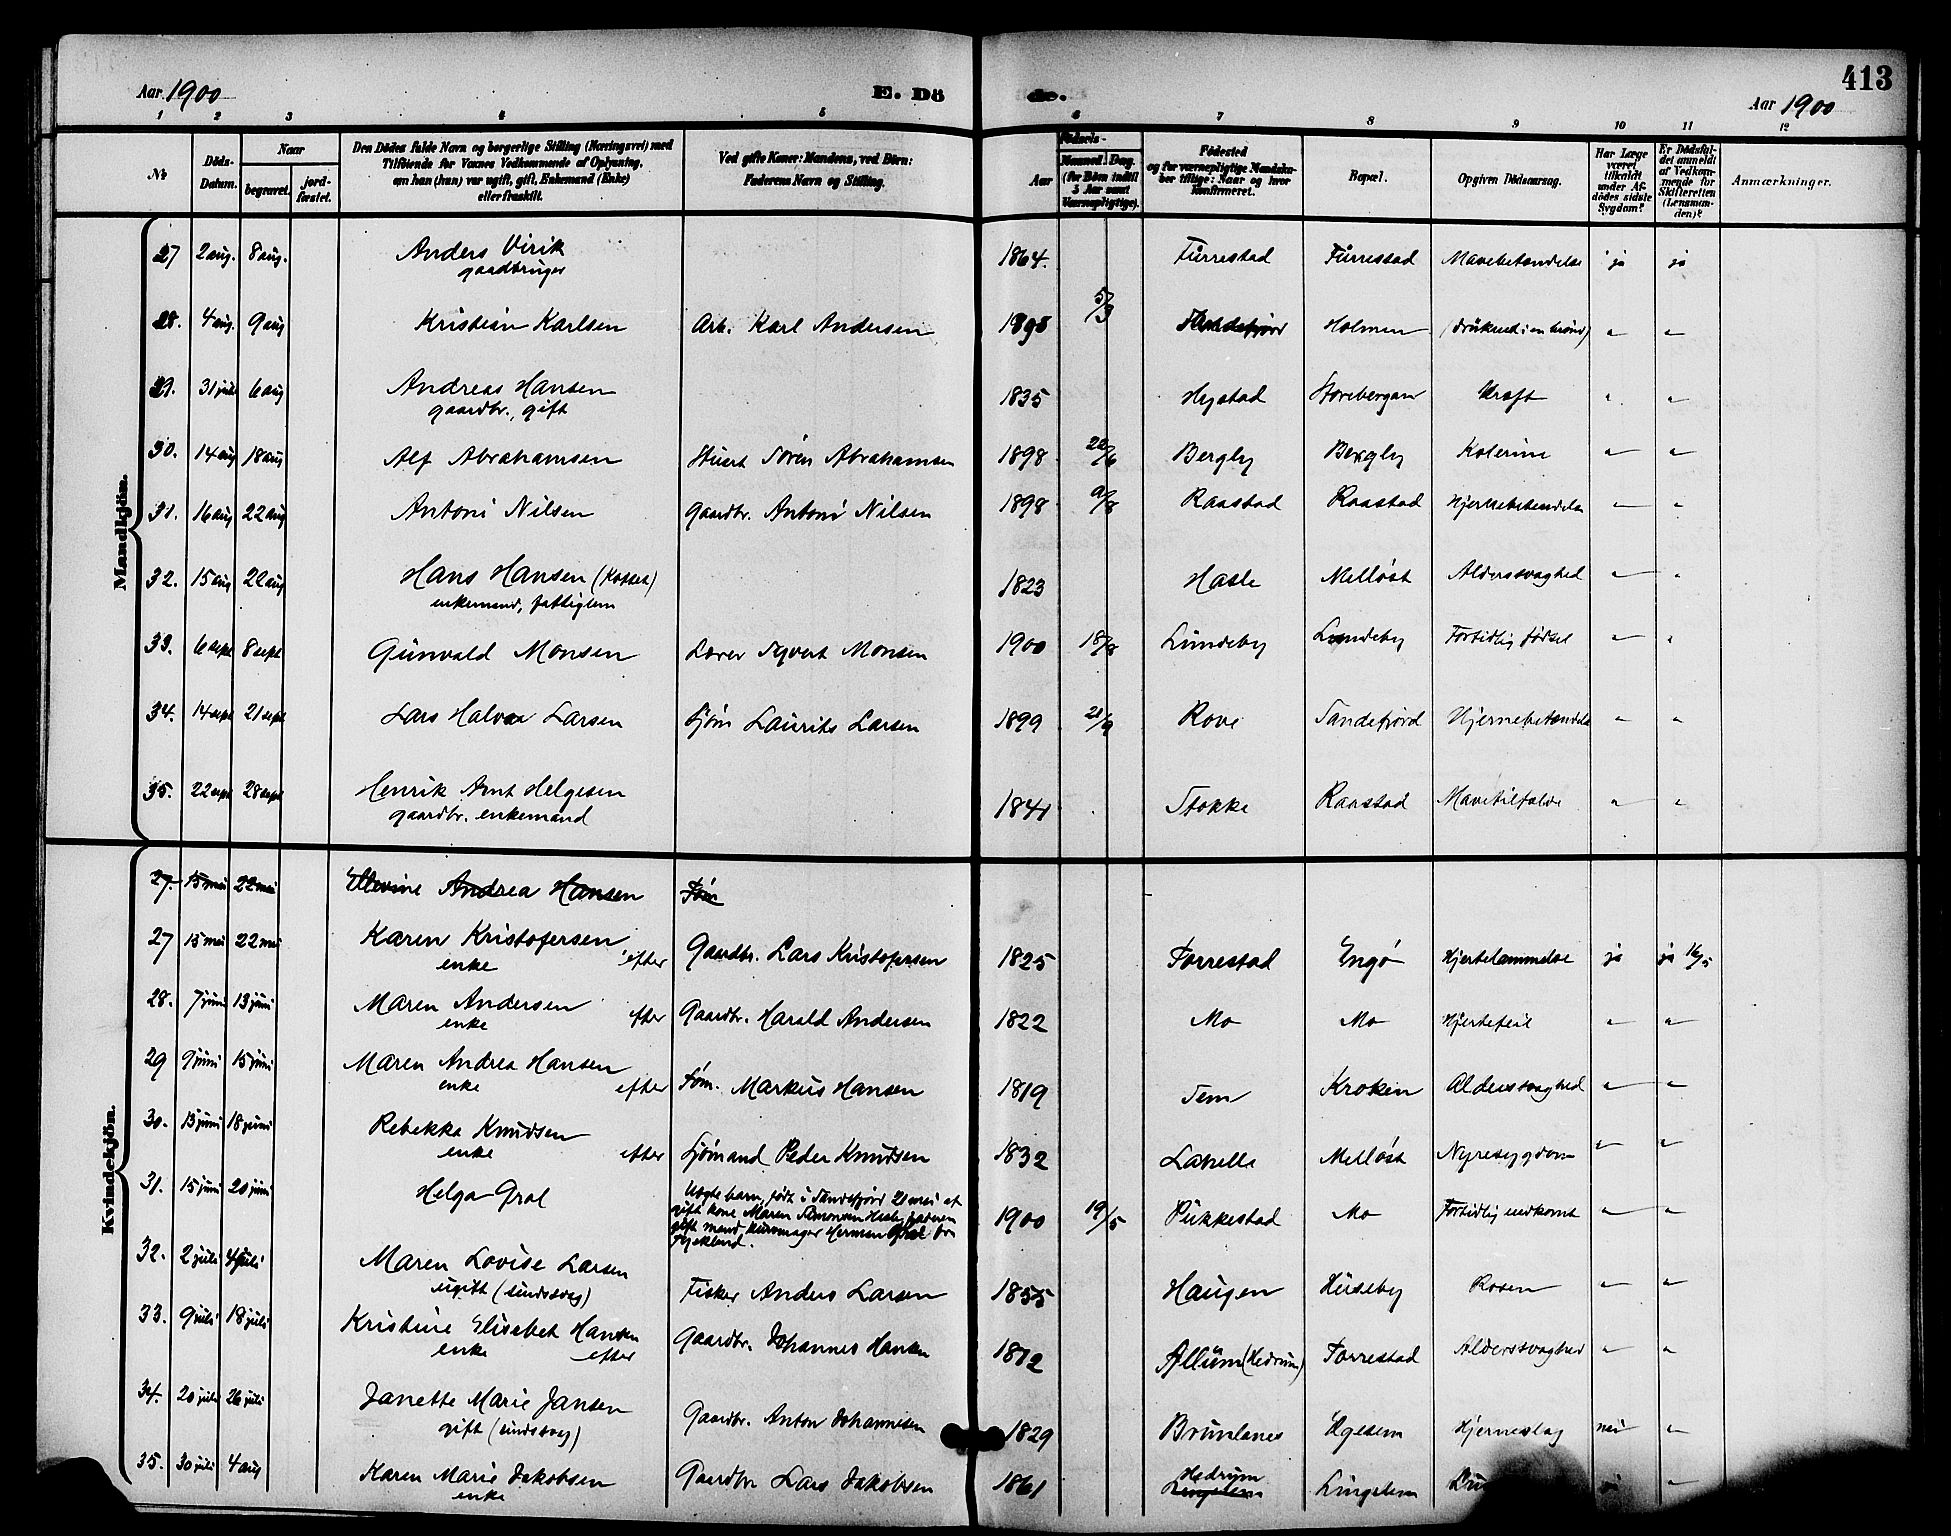 413
Aar 1900
E. Dö
de.
Aar 1900
1 2 3 4 5 6 7 8 9 10 11 12
No
Döds-
Datum.
Naar
begravet.
jord-
fæstet.
Den Dödes fulde Navn og borgerlige Stilling (Næringsvei) med
Tilföiende for Voxnes Vedkommende af Oplysning,
om hun (han) var ugift, gift, Enkemand (Enke)
eller fraskilt.
Ved gifte Koner: Mandens, ved Börn:
Faderens Navn og Stilling.
Födsels-
Aar
Maaned
Dag.
(for Börn indtil
5 Aar samt
Værnepligtige).
Födested
og for værnepligtige Mandska-
ber tillige: Naar og hvor
konfirmeret.
Bopæl.
Opgiven Dödsaarsag.
Har Læge
været
tilkaldt
under Af-
dödes sidste
Sygdom?
Er Dödsfal-
det anmeldt
af Vedkom-
mende for
Skifteretten
(Lensman-
den)?
Anmærkninger.
Mandkjön.
27 2 aug. 8 aug. Anders Virik 1864. Furrestad Furrestad Mavebetændelse ja ja
gaardbruger
28. 4 aug. 9 aug Kristian Karlsen Arb. Karl Andersen 1895 5/3 Sandefjord Holmen (druknet i en brønd) " "
29. 31 juli 6 aug Andreas Hansen 1835 Hystad Storebergan Kræft " "
gaardbr., gift
30. 14 aug 18 aug Alf Abrahamsen Stuert Søren Abrahamsen 1898 22/6 Bergby Bergby Kolerine " "
31. 16 aug 22 aug Antoni Nilsen Gaardbr. Antoni Nilsen 1898 9/8 Raastad Raastad Hjernebetændelse " "
32. 15 aug 22 aug Hans Hansen 1823 Hasle Melløst Alderssvaghed " "
enkemand, fattiglem
33. 6 sept 8 sept Gunvald Monsen Lærer Syvert Monsen 1900 18/8 Lundeby Lundeby Fortidlig fødsel " "
34. 14 sept 21 sept Lars Halvor Larsen Sjøm Laurits Larsen 1899 21/9 Rove Sandefjord Hjernebetændelse " "
35. 22 sept 28 sept Henrik Arnt Helgesen 1841 Stokke Raastad Mavetilfælde " "
gaardbr. enkemand
Kvindekjön.
27. 15 mai 22 mai Ellevine Andrea Hansen Søm
27 15 mai 22 mai Karen Kristofersen Gaardbr. Lars Kristofersen 1825 Torrestad Engø Hjertelammelse ja ja 16/5
enke efter
28. 7 juni 13 juni Maren Andersen Gaardbr. Harald Andersen 1822 Mo Mo Hjertefeil " "
enke efter
29 9 juni 15 juni Maren Andrea Hansen Søm. Markus Hansen 1819 Sem Kroken Alderssvaghed " "
enke efter
30. 13 juni 18 juni Rebekka Knudsen Sjømand Peder Knudsen 1832 Melløst Nyresygdom " "
enke efter
31. 15 juni 20 juni Helga Gral Uægte barn, født i Sandefjord 21 mai af
gift kone Maren Simonsen Hasle, faderen
gift mand Herman Gral
1900 19/5 Pukkestad Mo Fortidlig nedkomst " "
32. 2 juli 4 juli Maren Lovise Larsen Fisker Anders Larsen 1855 Haugen Huseby Rosen " "
ugift (sindssvag)
33. 9 juli 18 juli Kristine Elisabet Hansen Gaardbr. Johannes Hansen 1812 Allum (Hedrum) Torrestad Alderssvaghed " "
enke efter
34. 20 juli 26 juli Janette Marie Jansen Gaardbr. Anton Johannesen 1829 Brunlanes Hjerneslag nei "
gift (sindssvag)
35. 30 juli 4 aug Karen Marie Jakobsen Gaardbr Lars Jakobsen 1861 Hedrum Lingelem ja "
enke Lingelem